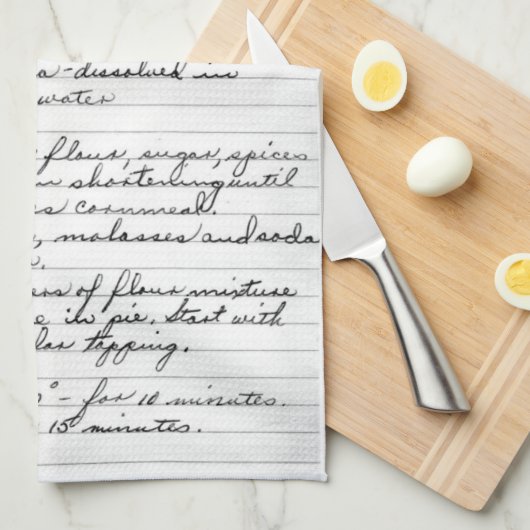 -dissolved in
water
flour, sugar, spices
shortening until
cornmeal.
, molasses and soda
of flour mixture
in pie. Start with
topping.
° - for 10 minutes.
15 minutes.